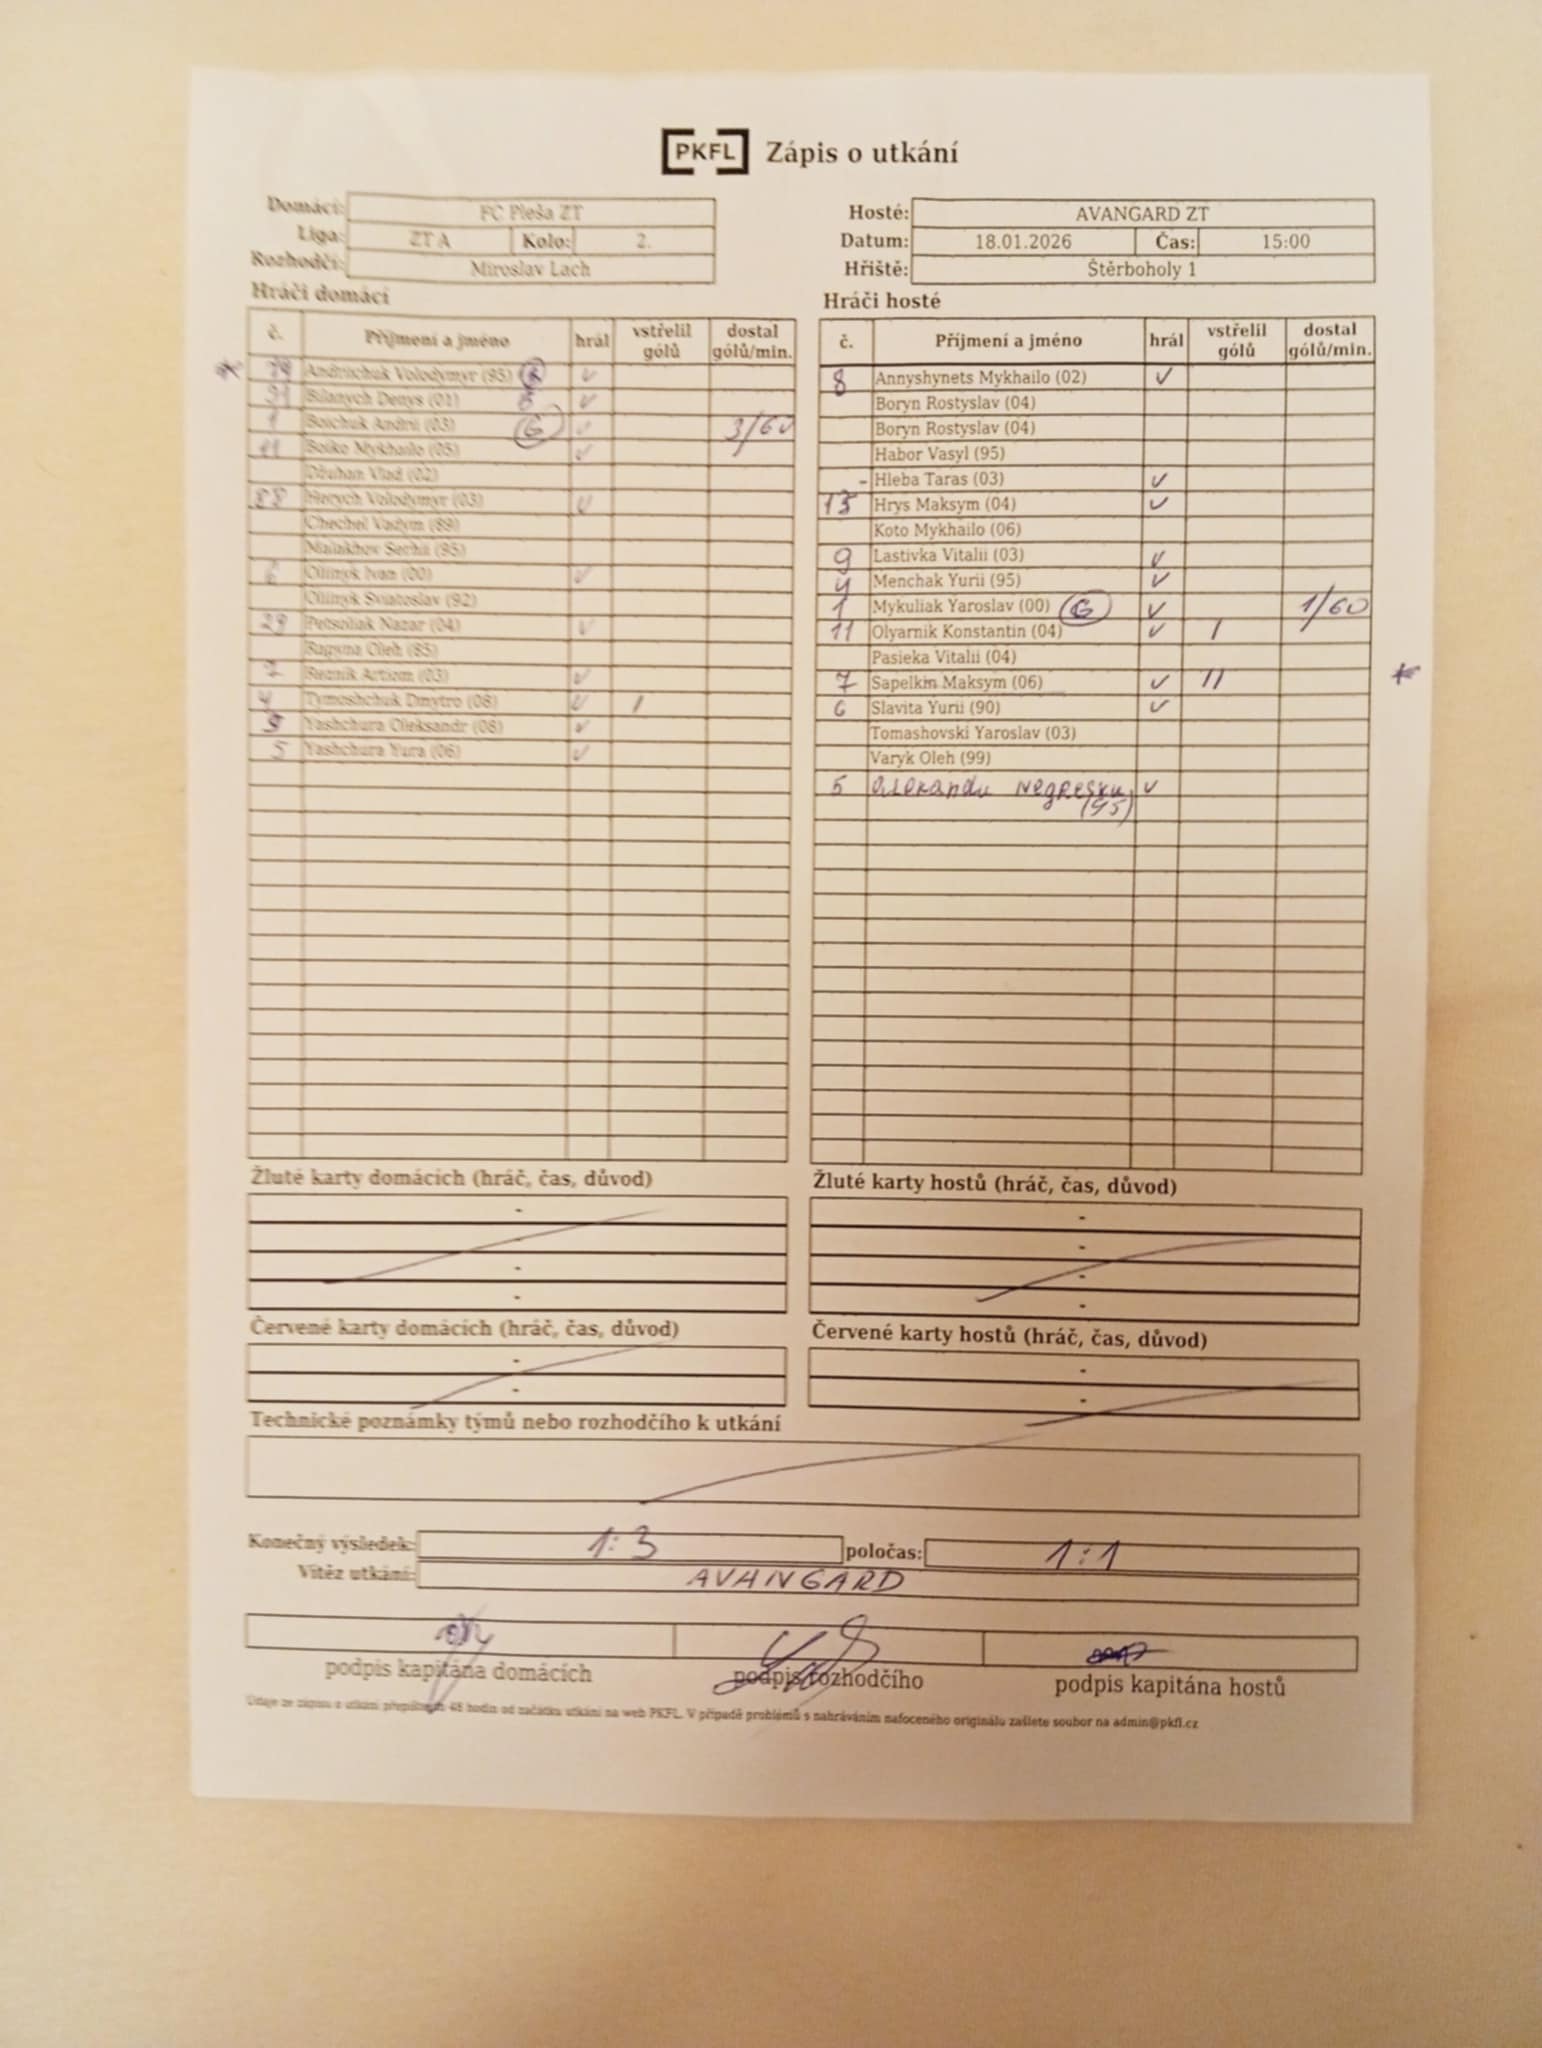 PKFL Zápis o utkání
Domácí: FC Pleša ZT
Liga: ZT A Kolo: 2.
Rozhodčí: Miroslav Lach
Hosté: AVANGARD ZT
Datum: 18.01.2026 Čas: 15:00
Hřiště: Štěrboholy 1
Hráči domácí
č. Příjmení a jméno hrál vstřelil gólů dostal gólů/min.
Andriichuk Volodymyr (95) ✓
91 Bilanych Denys (01) ✓
1 Boichuk Andrii (03) G ✓ 3/60
11 Boiko Mykhailo (05) ✓
Dzuhan Vlad (02)
88 Herych Volodymyr (03) ✓
Chechel Vadym (89)
Malakhov Serhii (95)
6 Oliinyk Ivan (00) ✓
Oliinyk Sviatoslav (92)
29 Petsoliak Nazar (04) ✓
Rapyna Oleh (85)
7 Reznik Artiom (03) ✓
4 Tymoshchuk Dmytro (08) ✓ I
9 Yashchura Oleksandr (08) ✓
5 Yashchura Yura (06) ✓
Hráči hosté
č. Příjmení a jméno hrál vstřelil gólů dostal gólů/min.
8 Annyshynets Mykhailo (02) ✓
Boryn Rostyslav (04)
Boryn Rostyslav (04)
Habor Vasyl (95)
- Hleba Taras (03) ✓
13 Hrys Maksym (04) ✓
Koto Mykhailo (06)
9 Lastivka Vitalii (03) ✓
4 Menchak Yurii (95) ✓
1 Mykuliak Yaroslav (00) G ✓ 1/60
11 Olyarnik Konstantin (04) ✓ I
Pasieka Vitalii (04)
7 Sapelkin Maksym (06) ✓ II
6 Slavita Yurii (90) ✓
Tomashovski Yaroslav (03)
Varyk Oleh (99)
5 Negresku (95) ✓
Žluté karty domácích (hráč, čas, důvod)
-
-
-
-
Žluté karty hostů (hráč, čas, důvod)
-
-
-
-
Červené karty domácích (hráč, čas, důvod)
-
-
Červené karty hostů (hráč, čas, důvod)
-
-
Technické poznámky týmů nebo rozhodčího k utkání
Konečný výsledek: 1:3 poločas: 1:1
Vítěz utkání: AVANGARD
podpis kapitána domácích podpis rozhodčího podpis kapitána hostů
Údaje ze zápisu o utkání přepište do 48 hodin od začátku utkání na web PKFL. V případě problémů s nahráváním nafoceného originálu zašlete soubor na admin@pkfl.cz